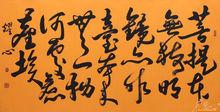 菩提本
無樹明
鏡亦非
臺本來
無一物
何處惹
塵埃